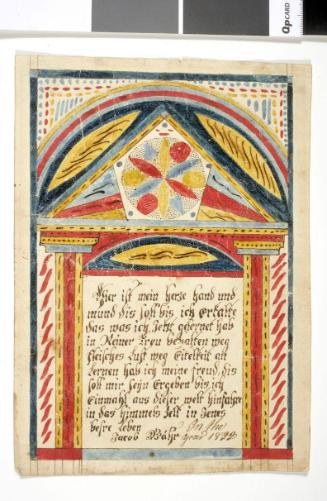 Hier ist mein herze hand und
mund dis soll bis ich Erkalte
das was ich Jetzt gelernet hab
in Reiner treu behalten weg
fleisches Lust weg Eitelkeit an
lernen hab ich meine freud, dis
soll mir seyn Ergeben bis ich
Einmahl aus dieser welt hinfahre
in das himmels Zelt in Jenes
besre leben
Jacob Bähr
In the
year 1833